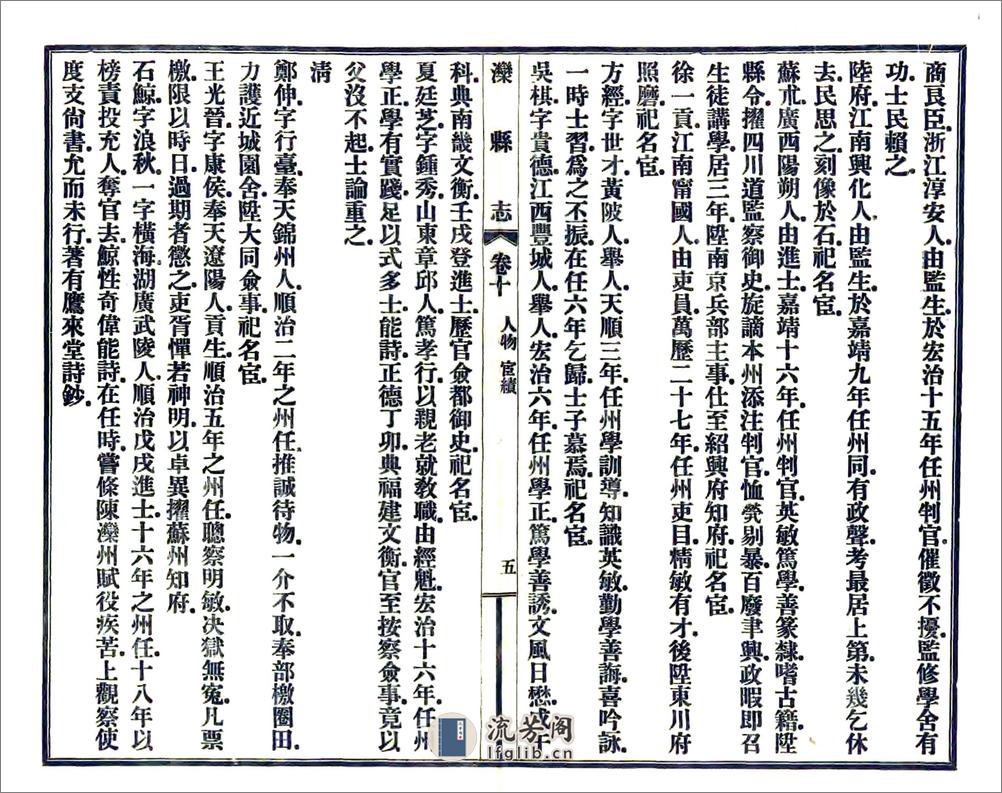 商良臣浙江淳安人由監生於宏治十五年任州判官催徵不擾監修學舍有
功士民賴之
陸府江南興化人由監生於嘉靖九年任州同有政聲考最居上第未幾乞休
去民思之刻像於石祀名宦
蘇朮廣西陽朔人由進士嘉靖十六年任州判官英敏篤學善篆隸嗜古籍陞
縣令擢四川道監察御史旋謫本州添注判官恤煢剔暴百廢聿興政暇即召
生徒講學居三年陞南京兵部主事仕至紹興府知府祀名宦
徐一貢江南甯國人由吏員萬歷二十七年任州吏目精敏有才後陞東川府
照磨祀名宦
方經字世才黃陂人舉人天順三年任州學訓導知識英敏勤學善誨喜吟詠
一時士習爲之丕振在任六年乞歸士子慕焉祀名宦
吳棋字貴德江西豐城人舉人宏治六年任州學正篤學善誘文風日懋戊午
灤縣志
卷十
人物 宦績
五
科典南畿文衡壬戌登進士歷官僉都御史祀名宦
夏廷芝字鍾秀山東章邱人篤孝行以親老就敎職由經魁宏治十六年任州
學正學有實踐足以式多士能詩正德丁卯典福建文衡官至按察僉事竟以
父沒不起士論重之
清
鄭伸字行臺奉天錦州人順治二年之州任推誠待物一介不取奉部檄圈田
力護近城園舍陞大同僉事祀名宦
王光晉字康侯奉天遼陽人貢生順治五年之州任聰察明敏决獄無寃凡票
檄限以時日過期者懲之吏胥憚若神明以卓異擢蘇州知府
石鯨字浪秋一字橫海湖廣武陵人順治戊戌進士十六年之州任十八年以
榜責投充人奪官去鯨性奇偉能詩在任時嘗條陳灤州賦役疾苦上觀察使
度支尙書尤而未行著有鷹來堂詩鈔
流芳阁
lfglib.cn